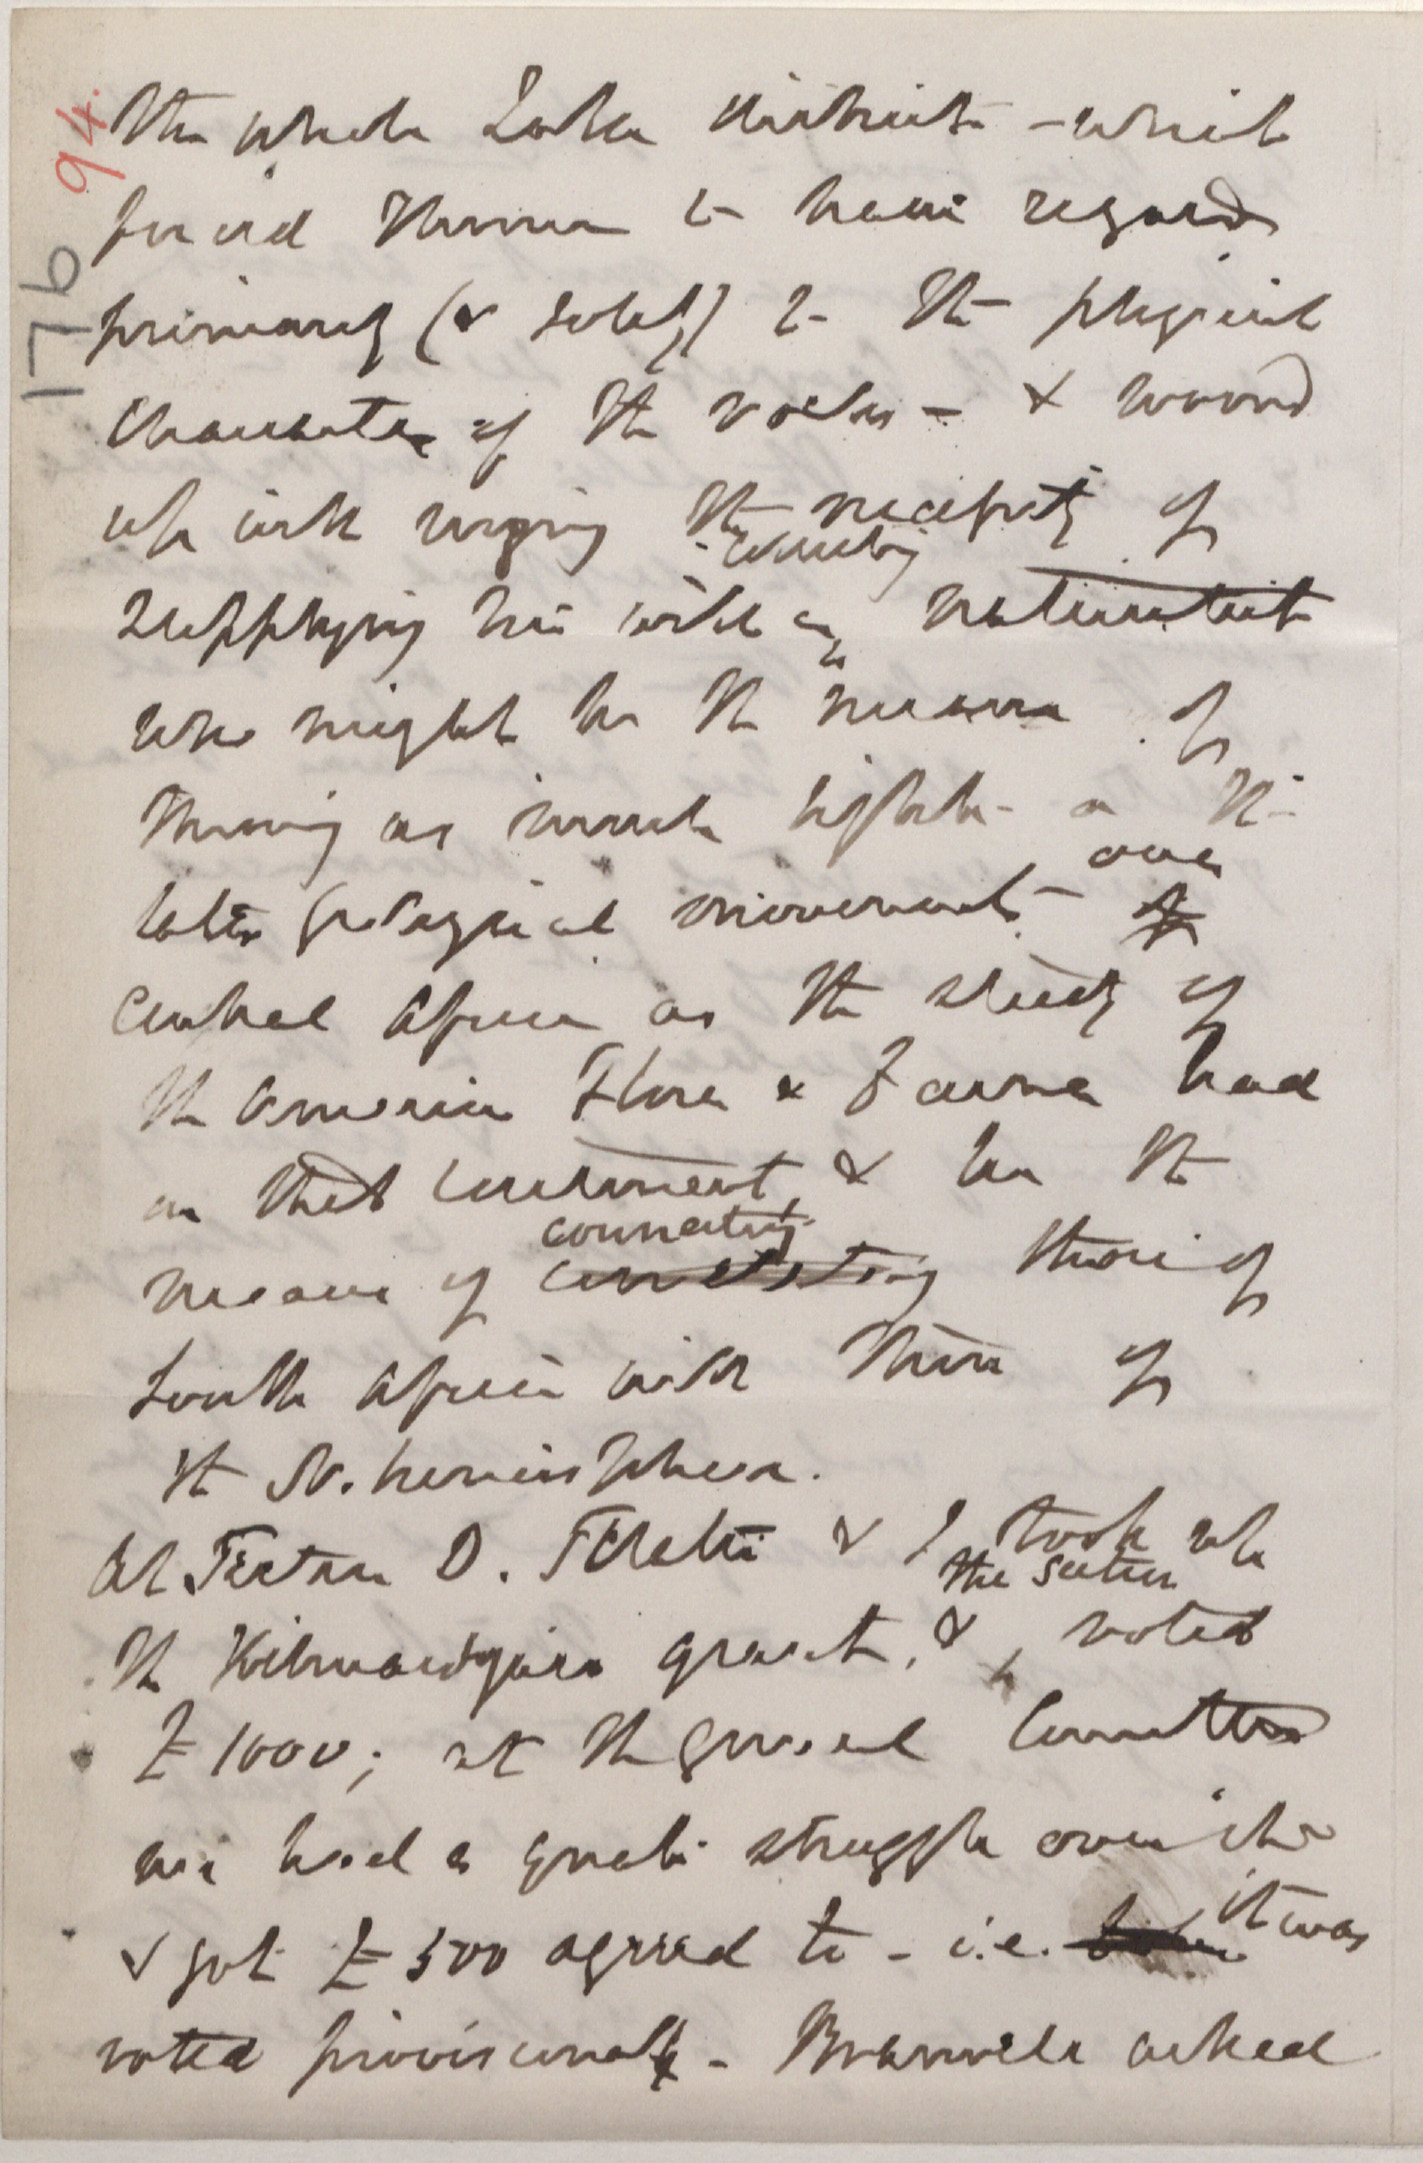 94.
176
the whole Lake districts - which
forced Thomson to have regard
primarily (& solely) to the physical
character of the rocks - & wound
up with urging the necessity of
supplying him with a collecting naturalist
who might be the means of
throwing as much light on the
later geological movements over of
Central Africa as the study of
the American Flora & Fauna had
on that continent, & be the
means of connecting connecting those of
South Africa with those of
the N. hemisphere.
At Section D. Thiselton & I took up
the Kilimandjaro grant, & the section voted
£1000; at the general Committee
we had a great struggle over it
& got £500 agreed to - i.e. it was
voted provisionally - Bramwell asked